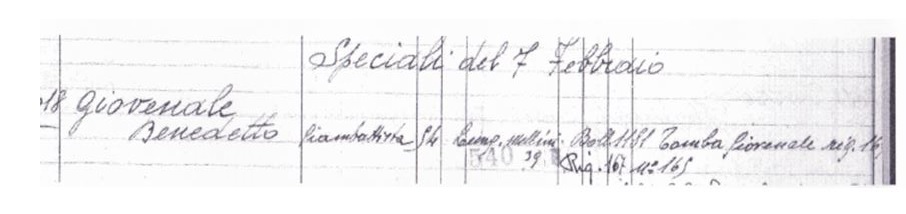 Speciali del 7 Febbraio
18 Giovenale
Benedetto Giambattista 54 Lung. mellini. Boll 1151 Tomba Giovenale rig. 16
540 39 Rig. 167 nº 165